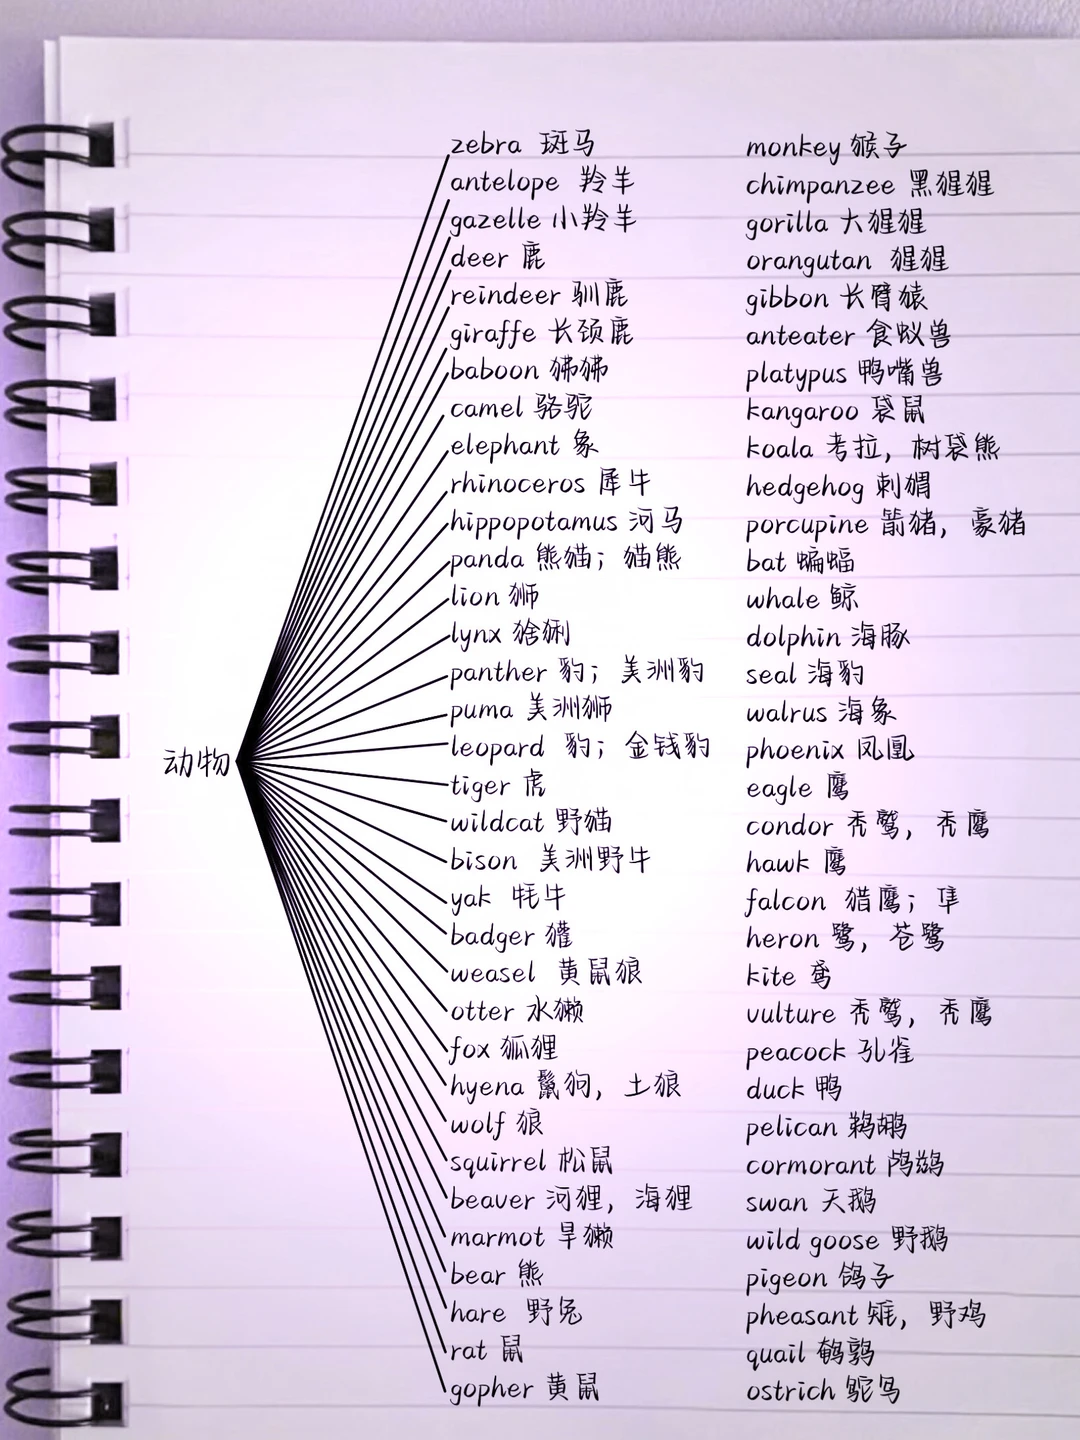 zebra 斑马
antelope 羚羊
gazelle 小羚羊
deer 鹿
reindeer 驯鹿
giraffe 长颈鹿
baboon 狒狒
camel 骆驼
elephant 象
rhinoceros 犀牛
hippopotamus 河马
panda 熊猫；猫熊
lion 狮
lynx 猞猁
panther 豹；美洲豹
puma 美洲狮
leopard 豹；金钱豹
动物
tiger 虎
wildcat 野猫
bison 美洲野牛
yak 牦牛
badger 獾
weasel 黄鼠狼
otter 水獭
fox 狐狸
hyena 鬣狗，土狼
wolf 狼
squirrel 松鼠
beaver 河狸，海狸
marmot 旱獭
bear 熊
hare 野兔
rat 鼠
gopher 黄鼠
monkey 猴子
chimpanzee 黑猩猩
gorilla 大猩猩
orangutan 猩猩
gibbon 长臂猿
anteater 食蚁兽
platypus 鸭嘴兽
kangaroo 袋鼠
koala 考拉，树袋熊
hedgehog 刺猬
porcupine 箭猪，豪猪
bat 蝙蝠
whale 鲸
dolphin 海豚
seal 海豹
walrus 海象
phoenix 凤凰
eagle 鹰
condor 秃鹫，秃鹰
hawk 鹰
falcon 猎鹰；隼
heron 鹭，苍鹭
kite 鸢
vulture 秃鹫，秃鹰
peacock 孔雀
duck 鸭
pelican 鹈鹕
cormorant 鸬鹚
swan 天鹅
wild goose 野鹅
pigeon 鸽子
pheasant 雉，野鸡
quail 鹌鹑
ostrich 鸵鸟